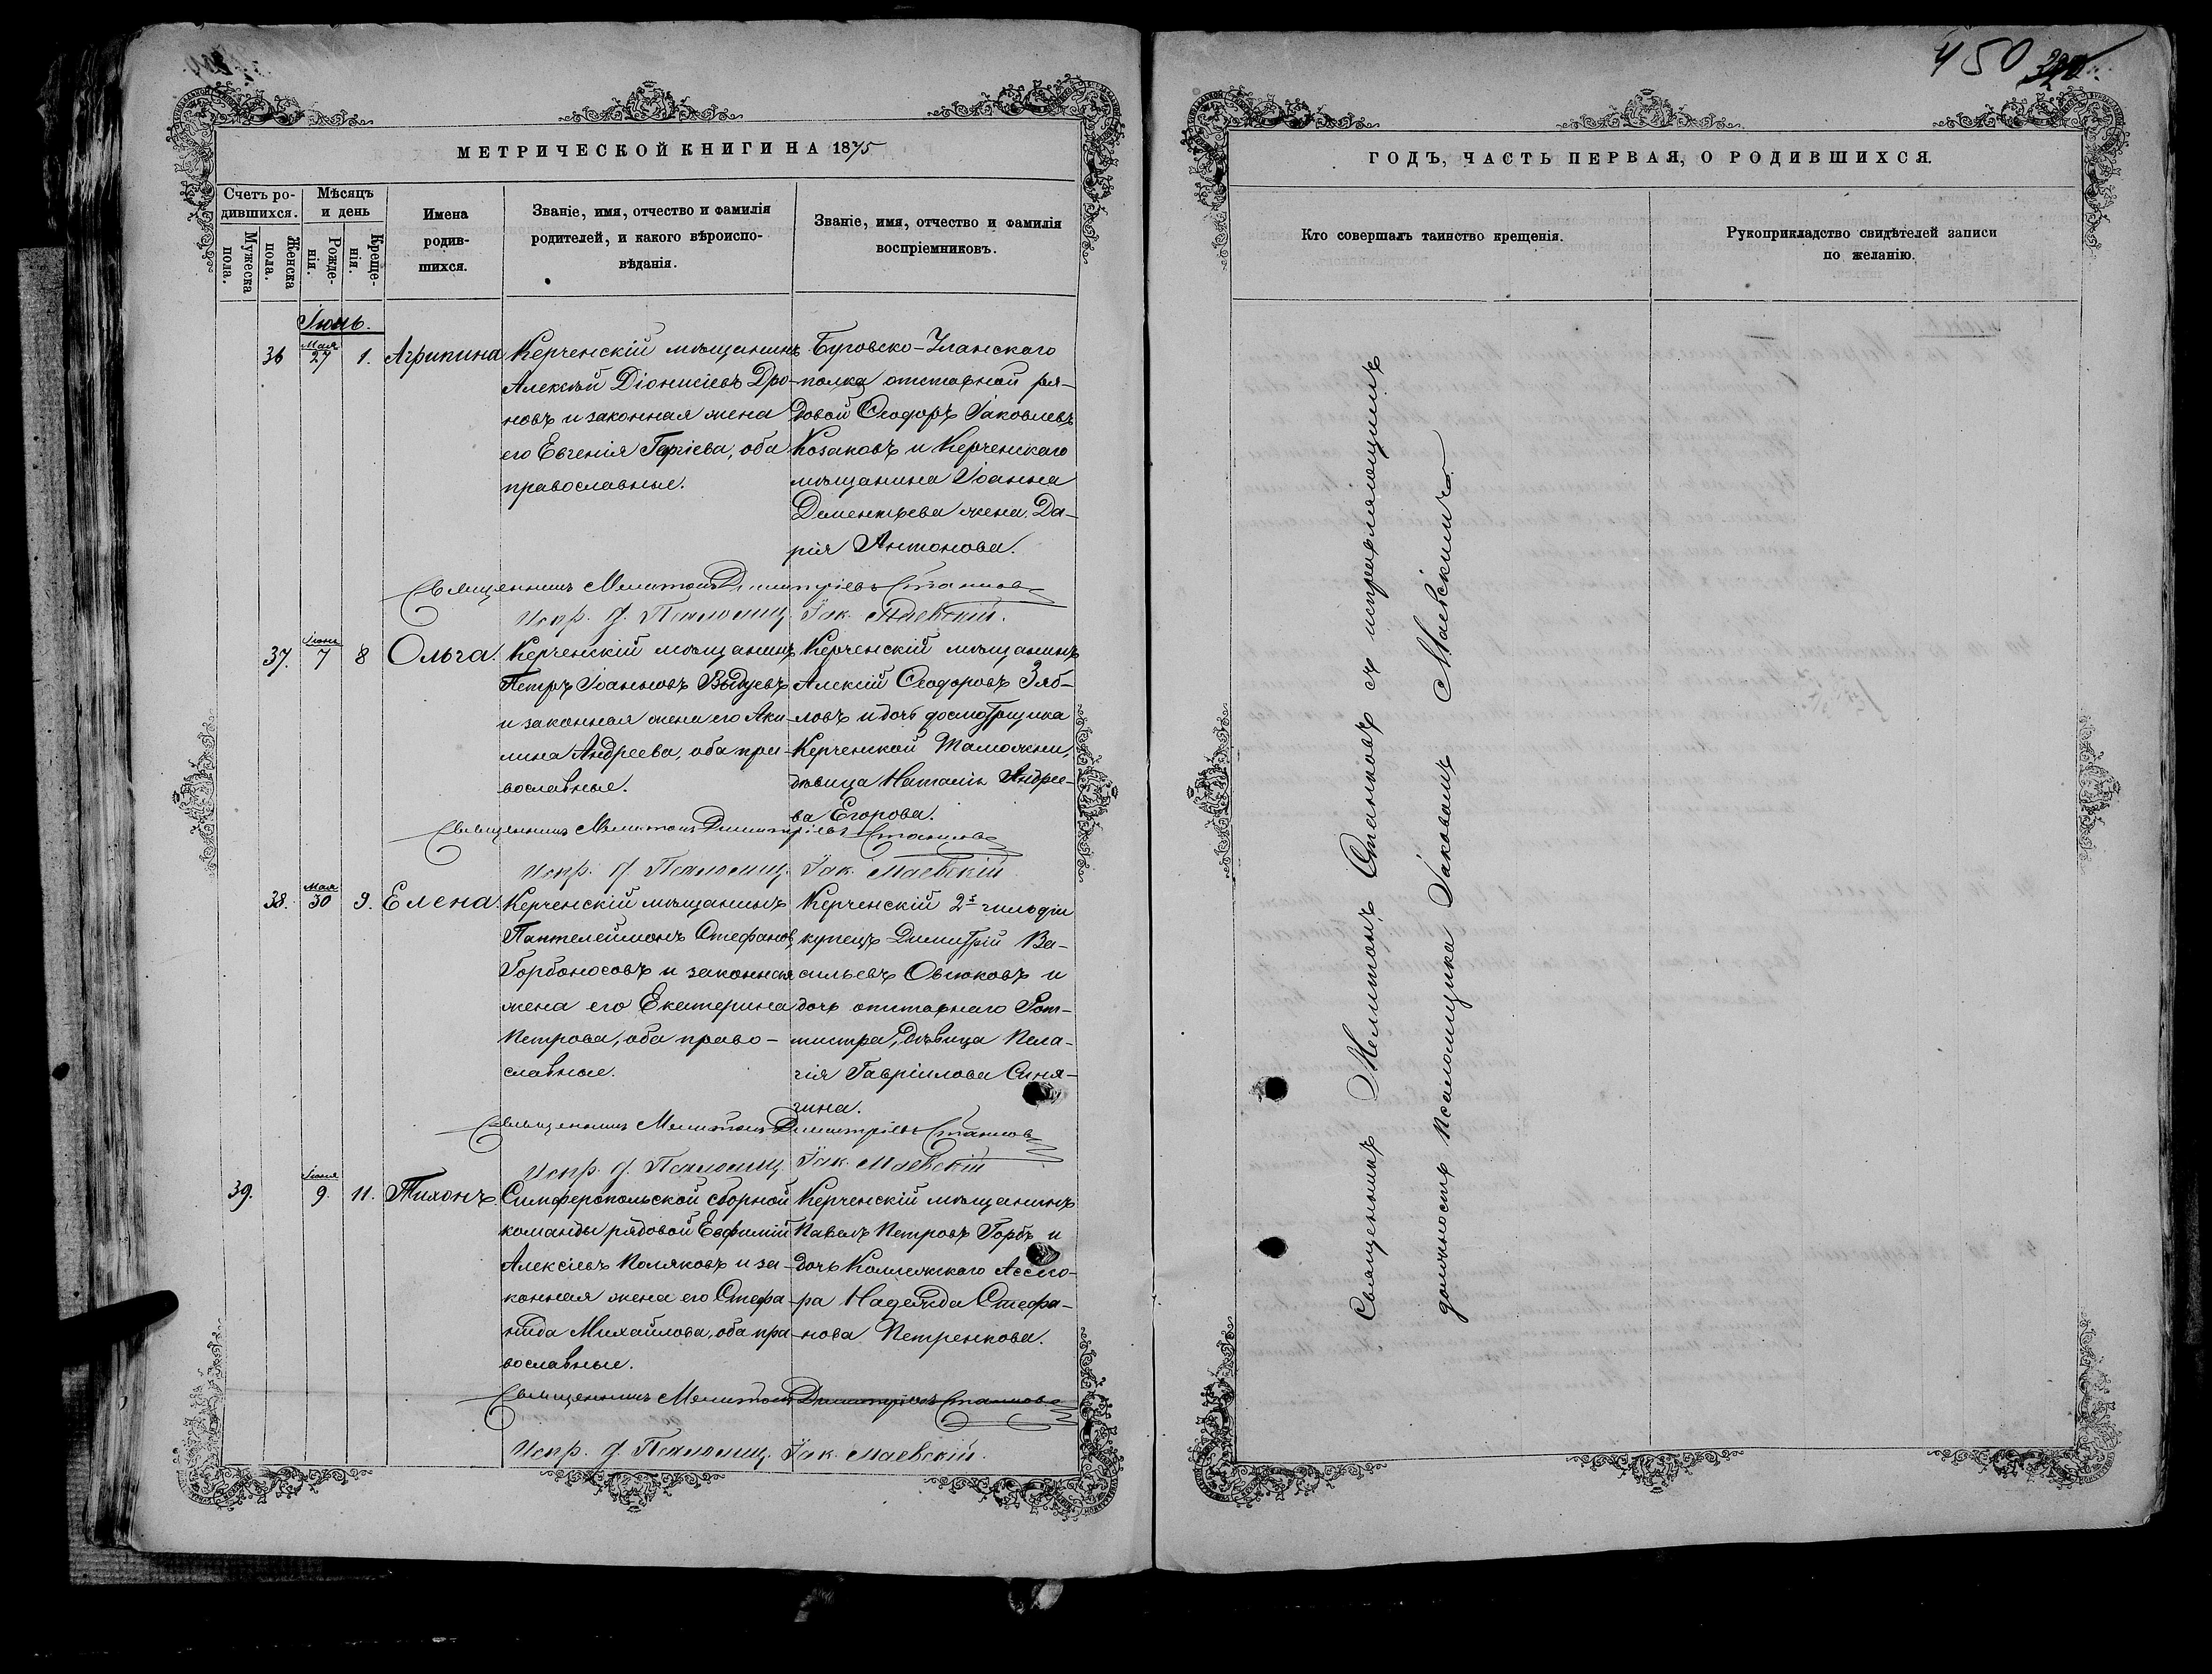 450
МЕТРИЧЕСКОЙ КНИГИ НА 1875
Счетъ ро-
дившихся.
Мужеска
пола.
Женска
пола.
Мѣсяцъ
и день
Рожде-
нія.
Креще-
нія.
Имена
родив-
шихся.
Званіе, имя, отчество и фамилія
родителей, и какого вѣроиспо-
вѣданія.
Званіе, имя, отчество и фамилія
воспріемниковъ.
Іюнь.
36 Мая 27 1. Агрипина
Керченскій мѣщанинъ
Алексѣй Діонисіевъ Дро-
новъ и законная жена
его Евгенія, оба
православные.
Буговско-Уланскаго
полка отставной ря-
довой Ѳеодоръ Іаковлевъ
Козаковъ и Керченскаго
мѣщанина Іоанна
Дементьева жена Да-
рія Антонова.
Священникъ Мелитонъ Димитріевъ Станковъ
Испр. д. Псаломщ. Іак. Маевскій.
37. Іюня 7 8 Ольга.
Керченскій мѣщанинъ
Петръ Іоанновъ
и законная жена его Аки-
лина Андреева, оба пра-
вославные.
Керченскій мѣщанинъ
Алексій Ѳеодоровъ Зяб-
ловъ и дочь досмотрщика
Керченской Таможни,
дѣвица Наталія Андрее-
ва Егорова.
Священникъ Мелитонъ Димитріевъ Станковъ
Испр. д. Псаломщ. Іак. Маевскій
38. Мая 30 9. Елена.
Керченскій мѣщанинъ
Пантелеймонъ Стефановъ
Горбоносовъ и законная
жена его Екатерина
Петрова, оба право-
славные.
Керченскій 2й гильдіи
купецъ Димитрій Ва-
сильевъ Овсюковъ и
дочь отставнаго Рот-
мистра, дѣвица Пела-
гія Гавріилова Синя-
гина.
Священникъ Мелитонъ Димитріевъ Станковъ
Испр. д. Псаломщ. Іак. Маевскій
39. Іюня 9. 11. Тихонъ.
Симферопольской сборной
команды рядовой Евфимій
Алексіевъ Поляковъ и за-
конная жена его Стефа-
нида Михайлова, оба пра-
вославные.
Керченскій мѣщанинъ
Павелъ Петровъ Горбъ и
дочь Коллежскаго Ассесо-
ра Надежда Стефа-
нова Петренкова.
Священникъ Мелитонъ Димитріевъ Станковъ
Испр. д. Псаломщ. Іак. Маевскій.
ГОДЪ, ЧАСТЬ ПЕРВАЯ, О РОДИВШИХСЯ.
Кто совершалъ таинство крещенія.
Рукоприкладство свидѣтелей записи
по желанію.
Священникъ Мелитонъ Станковъ съ исправляющимъ
должность Псаломщика Іаковомъ Маевскимъ